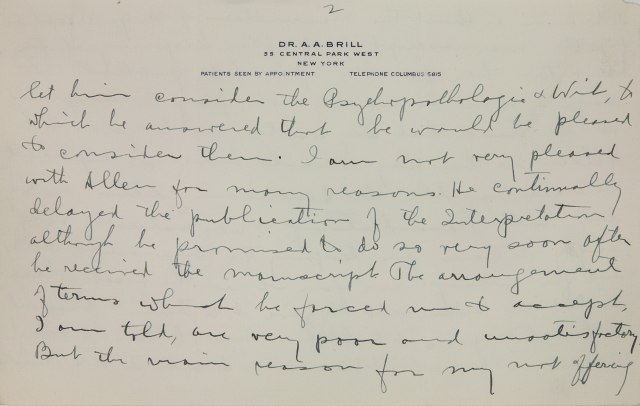 2
DR. A. A. BRILL
35 CENTRAL PARK WEST
NEW YORK
PATIENTS SEEN BY APPOINTMENT TELEPHONE COLUMBUS 5815
let him consider the Psychopathologie & Wit, to
which he answered that he would be pleased
to consider them. I am not very pleased
with Allen for many reasons. He continually
delayed the publication of the Interpretation
although he promised to do so very soon after
he received the manuscript. The arrangement
of terms which he forced me to accept,
I am told, are very poor and unsatisfactory.
But the main reason for my not offering